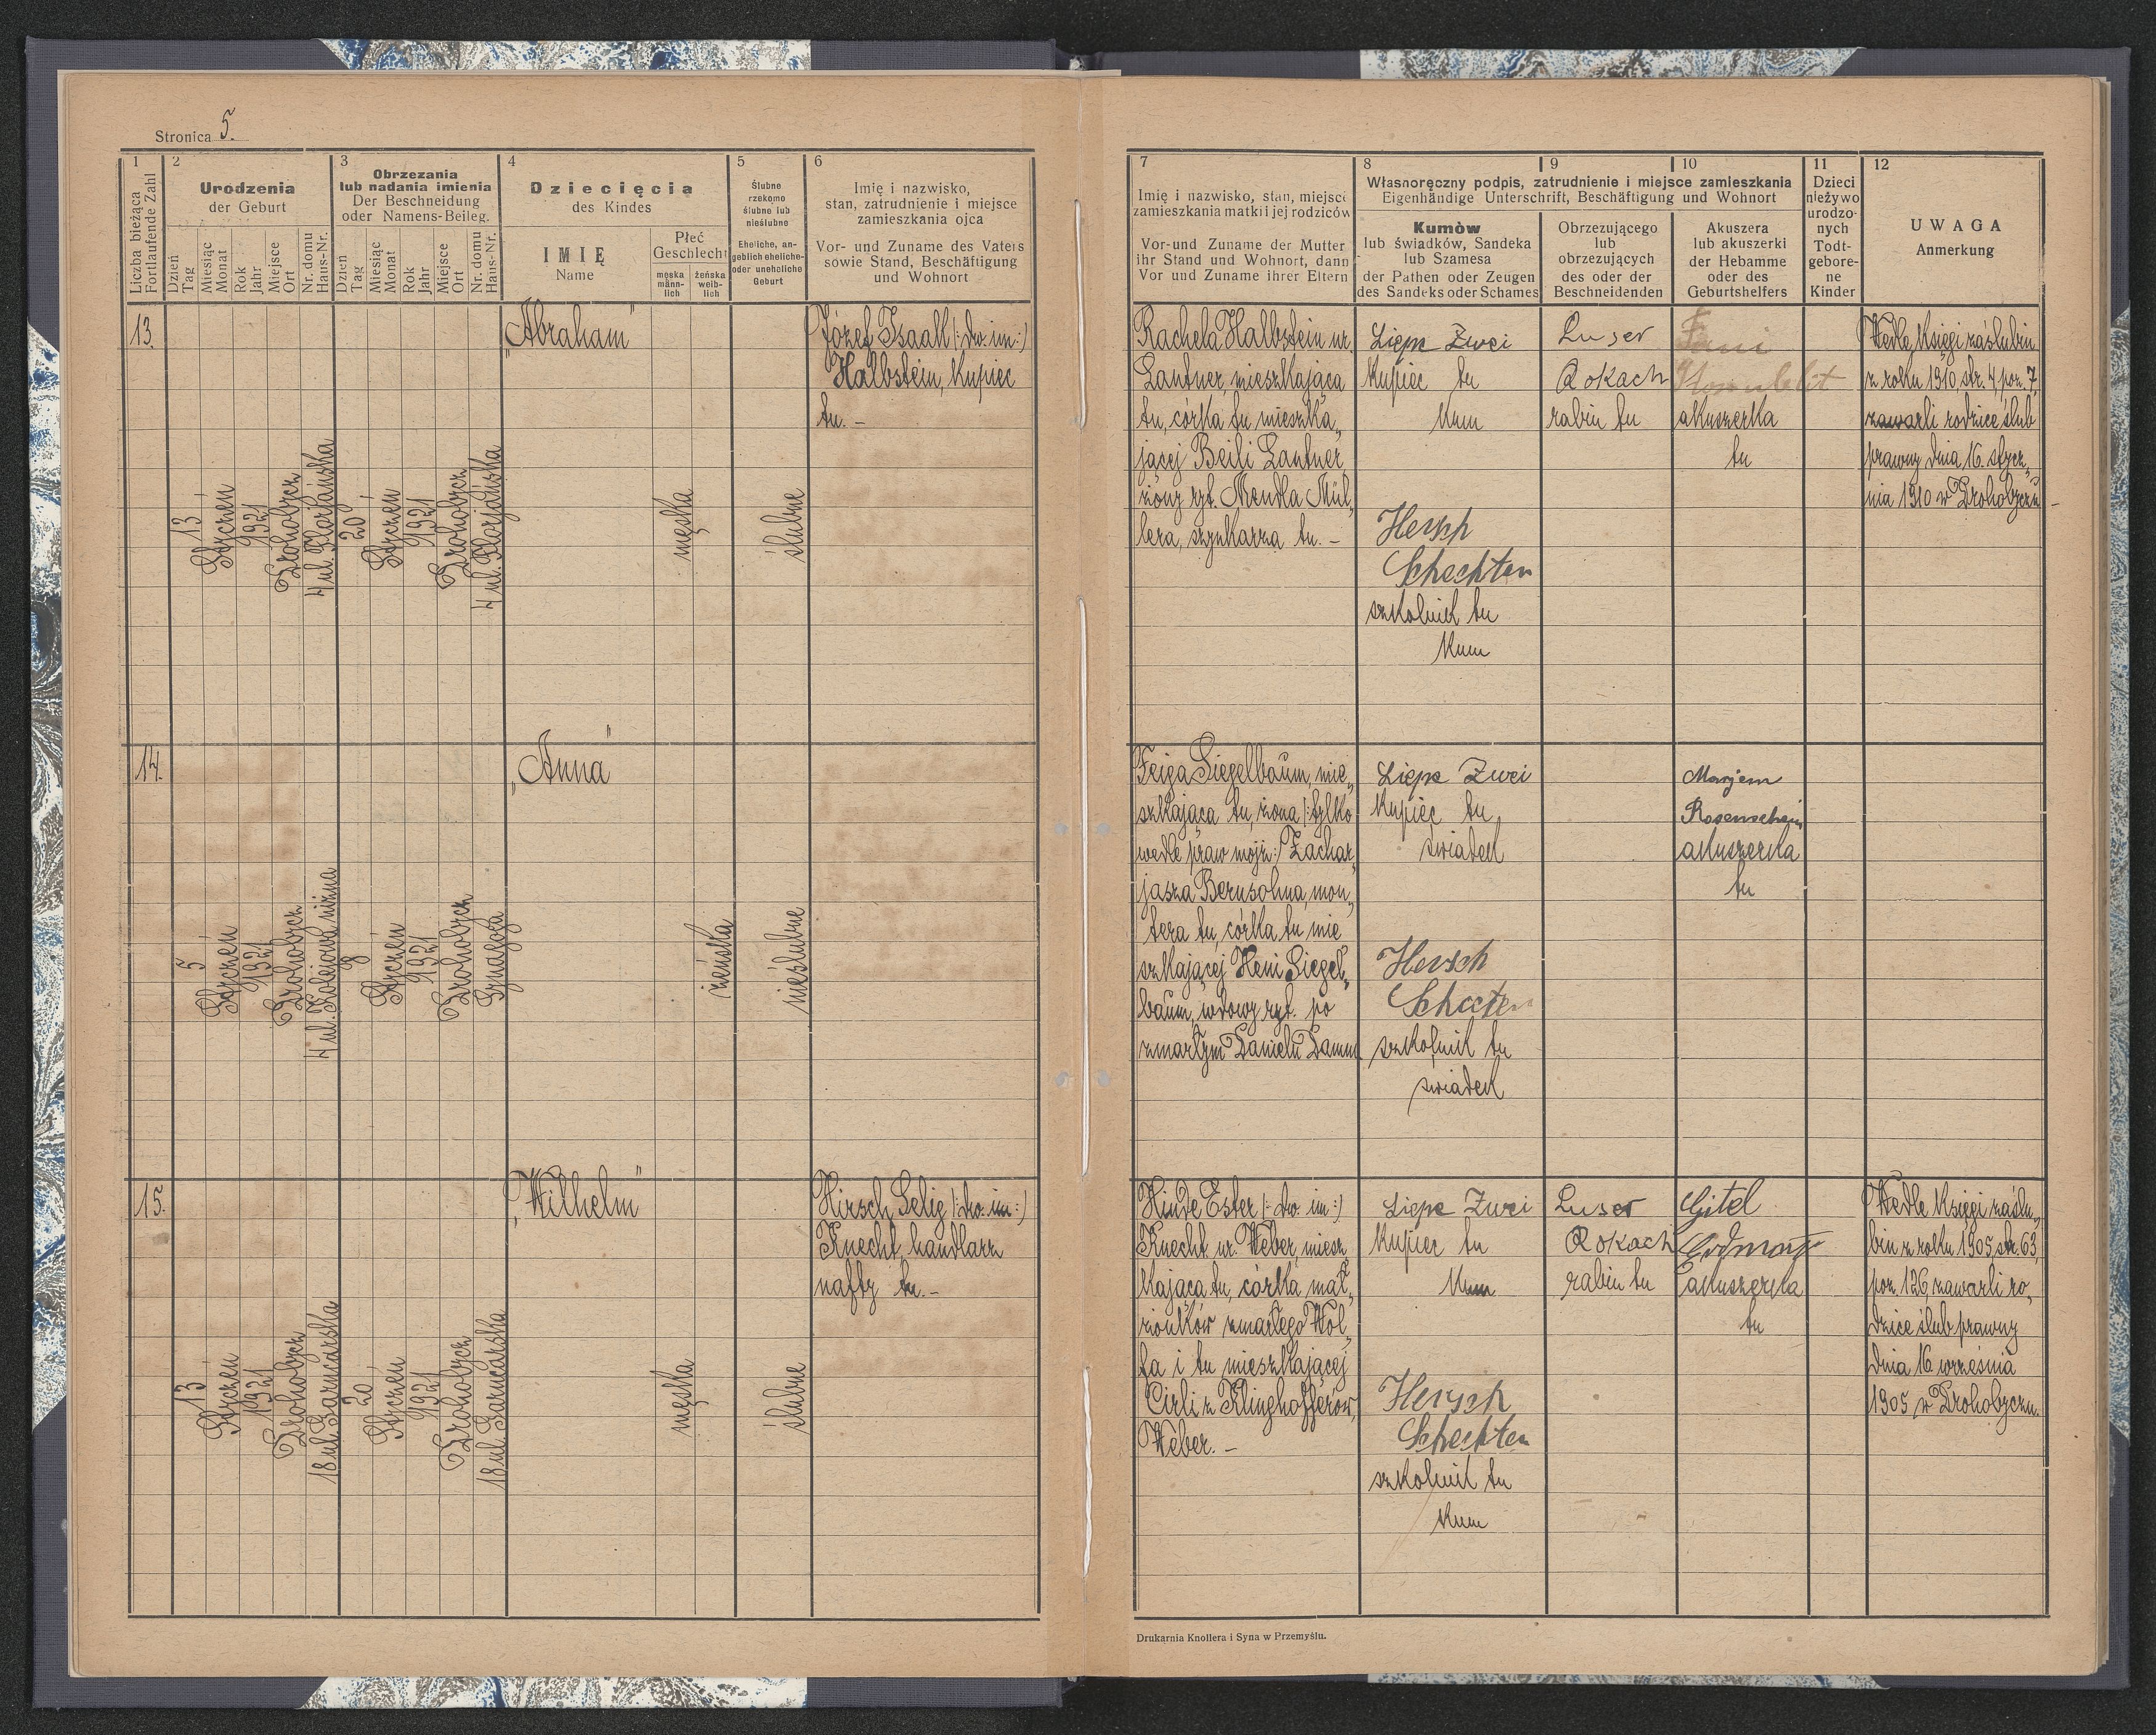 Stronica 5.
1
Liczba bieżąca
Fortlaufende Zahl
2
Urodzenia
der Geburt
Dzień
Tag
Miesiąc
Monat
Rok
Jahr
Miejsce
Ort
Nr. domu
Haus-Nr.
3
Obrzezania
lub nadania imienia
Der Beschneidung
oder Namens-Beileg.
Dzień
Tag
Miesiąc
Monat
Rok
Jahr
Miejsce
Ort
Nr. domu
Haus-Nr.
4
Dziecięcia
des Kindes
IMIĘ
Name
Płeć
Geschlecht
męska
männ-
lich
żeńska
weib-
lich
5
Ślubne
rzekomo
ślubne lub
nieślubne
Eheliche, an-
geblich eheliche-
oder uneheliche
Geburt
6
Imię i nazwisko,
stan, zatrudnienie i miejsce
zamieszkania ojca
Vor- und Zuname des Vaters
sowie Stand, Beschäftigung
und Wohnort
7
Imię i nazwisko, stan, miejsce
zamieszkania matki i jej rodziców
Vor-und Zuname der Mutter
ihr Stand und Wohnort, dann
Vor und Zuname ihrer Eltern
Własnoręczny podpis, zatrudnienie i miejsce zamieszkania
Eigenhändige Unterschrift, Beschäftigung und Wohnort
8
Kumòw
lub świadków, Sandeka
lub Szamesa
der Pathen oder Zeugen
des Sandeks oder Schames
9
Obrzezującego
lub
obrzezujących
des oder der
Beschneidenden
10
Akuszera
lub akuszerki
der Hebamme
oder des
Geburtshelfers
11
Dzieci
nieżywo
urodzo-
nych
Todt-
gebore-
ne
Kinder
12
UWAGA
Anmerkung
13.
13
Styczeń
1921
Drohobycz
4 ul. Florjańska
20
Styczeń
1921
Drohobycz
4 ul. Florjańska
„Abraham"
męska
ślubne
Józef Isaak (: dw. im:)
Halbstein, kupiec
tu. -
Rachela Halbstein ur.
Lantner, mieszkająca
tu, córka tu mieszka„
jącej Beili Lantner,
żony ryt. Mendla Mül„
lera, szynkarza tu. -
Liepe Zwei
kupiec tu
kum
Hersch
Schechter
szkolnik tu
kum
Luser
Rokach
rabin tu
akuszerka
tu
Wedle księgi zaślubin
z roku 1910, str. 4, poz. 7,
zawarli rodzice ślub
prawny dnia 16. stycz„
nia 1910 w Drohobyczu. -
14.
5
Styczeń
1921
Drohobycz
4 ul. Kolejowa niżna
8
Styczeń
1921
Drohobycz
Synagoga
„Anna"
żeńska
nieślubne
Feiga Siegelbaum, mie„
szkająca tu, żona (: tylko
wedle praw mojż:) Zachar„
jasza Bernsohna, mon„
tera tu, córka tu mie
szkającej Heni Siegel„
baum, wdowy ryt. po
zmarłym Danielu Damm
Liepe Zwei
kupiec tu,
świadek
Hersch
Schecter
szkolnik tu
świadek
Marjem
Rosenschein
akuszerka
tu
15.
13
Styczeń
1921
Drohobycz
18 ul. Garncarska
20
Styczeń
1921
Drohobycz
18 ul. Garncarska
„Wilhelm"
męska
ślubne
Hirsch Selig (: dw. im:)
Knecht, handlarz
nafty tu. -
Hinde Ester (: dw. im:)
Knecht ur. Weber, miesz„
kająca tu, córka mał„
żonków zmarłego Wol„
fa i tu mieszkającej
Cirli z Klinghofferów,
Weber. -
Liepe Zwei
kupiec tu
kum
Hersch
Schechter
szkolnik tu
kum
Luser
Rokach
rabin tu
Gitel
akuszerka
tu
Wedle księgi zaślu„
bin z roku 1905, str. 63,
poz. 126, zawarli ro„
dzice ślub prawny
dnia 16 września
1905 w Drohobyczu.
Drukarnia Knollera i Syna w Przemyślu.